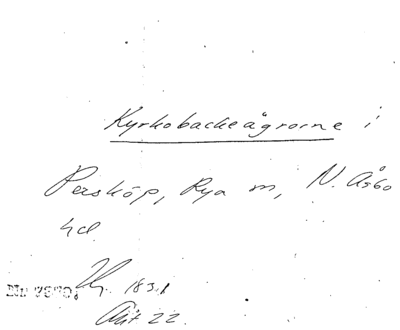 Kyrkobackeågrorne i
Perskop, Rya m, N. Åsbo
hd.
1831
Akt 22.